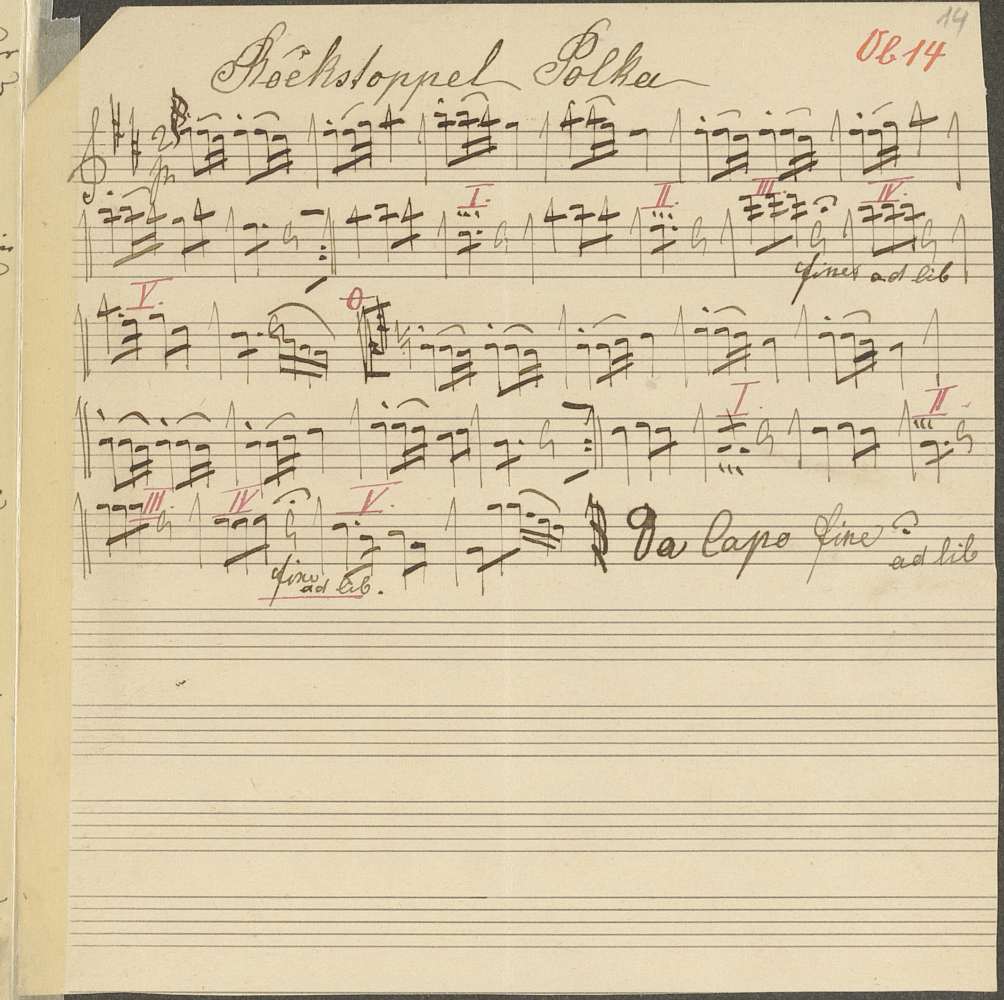 14
Vb 14
Röckstoppel Polka
I.
II.
III.
IV.
fine ad lib
V.
O
I.
II.
III
IV
V.
fine
ad lib.
Da Capo fine
ad lib